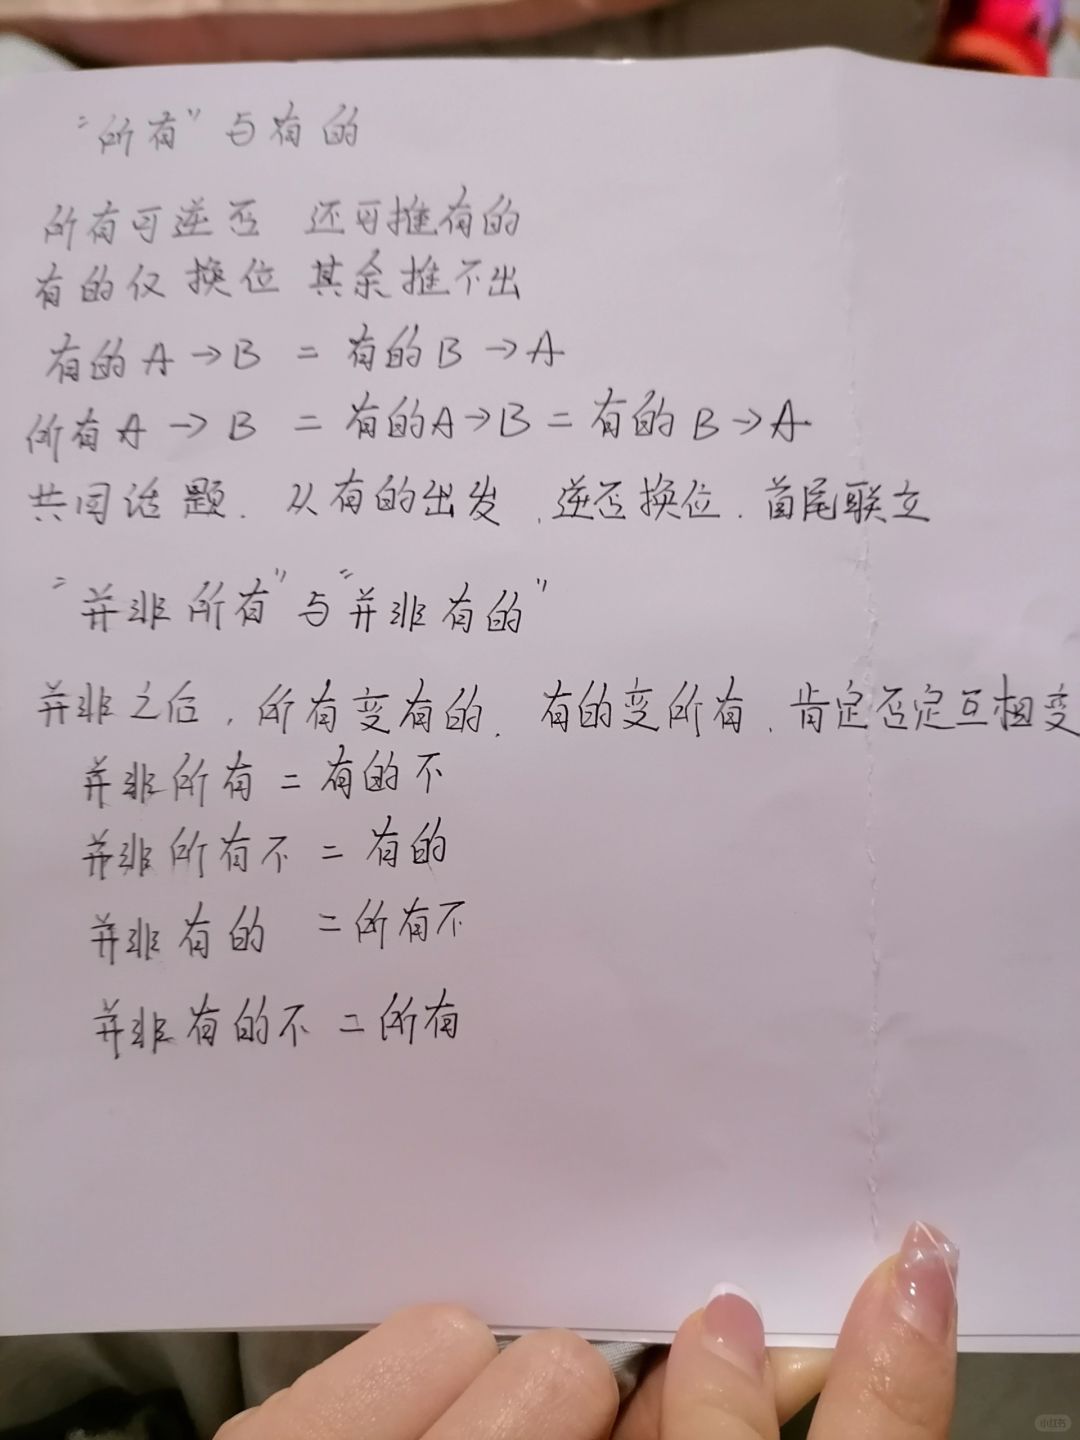 “所有”与有的
所有可逆否 还可推有的
有的仅换位 其余推不出
有的A→B = 有的B→A
所有A→B = 有的A→B = 有的B→A
共同话题. 从有的出发, 逆否换位. 首尾联立
“并非所有”与“并非有的”
并非之后, 所有变有的. 有的变所有, 肯定否定互相变
并非所有 = 有的不
并非所有不 = 有的
并非有的 = 所有不
并非有的不 = 所有
小红书